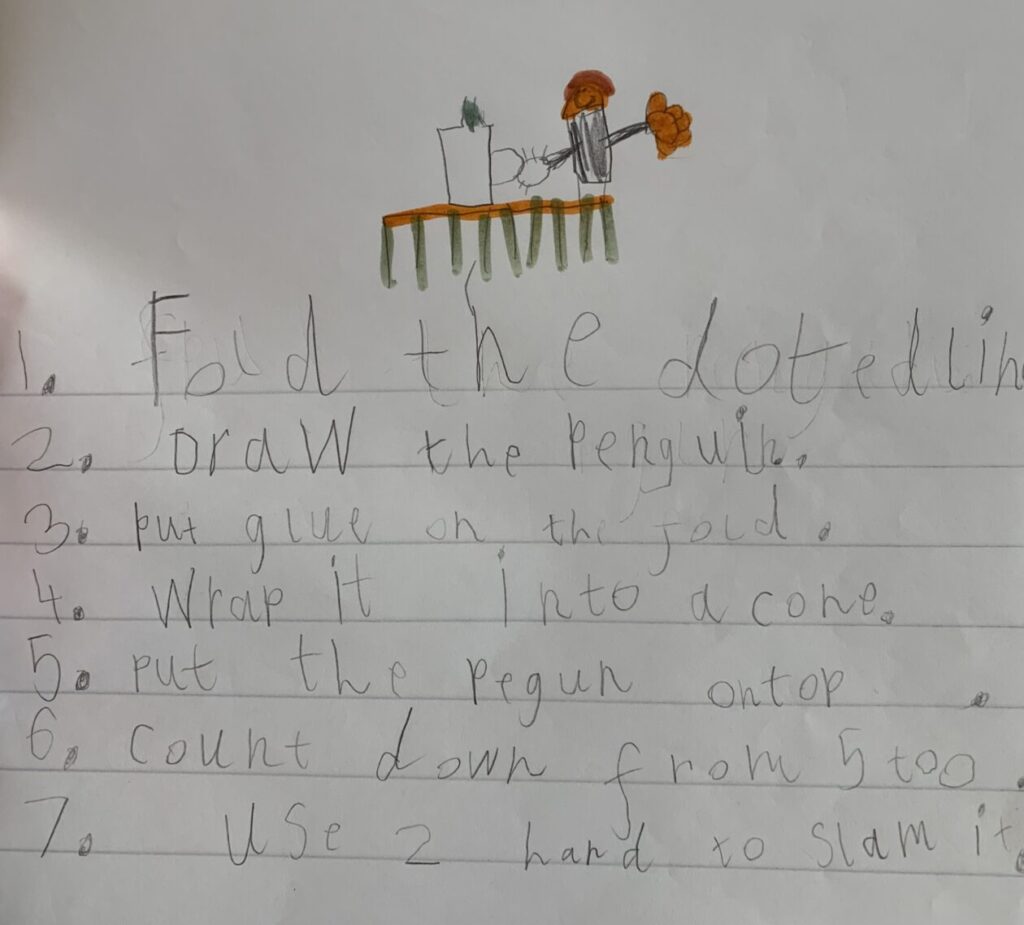 1. Fold the dotedlin
2. Draw the Penguin.
3. put glue on the fold.
4. Wrap it into a cone.
5. put the pegun ontop .
6. Count down from 5 too.
7. Use 2 hand to slam it.